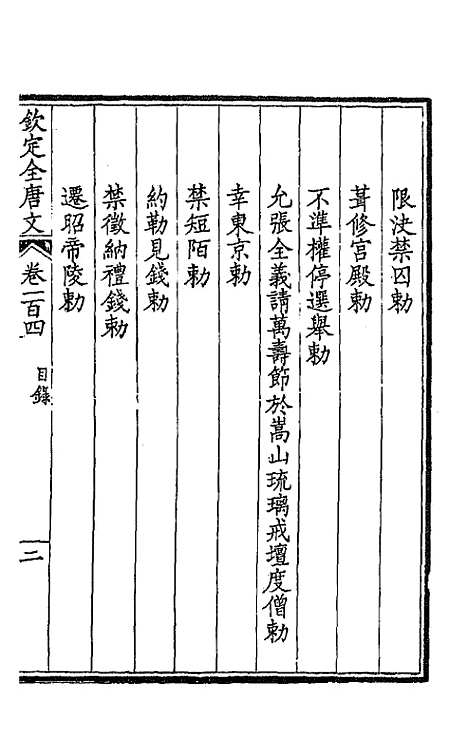 限決禁囚勅
葺修宫殿勅
不準權停選舉勅
允張全義請萬壽節於嵩山琉璃戒壇度僧勅
幸東京勅
禁短陌勅
約勒見錢勅
禁徵納禮錢勅
遷昭帝陵勅
欽定全唐文 卷一百四 目錄 二